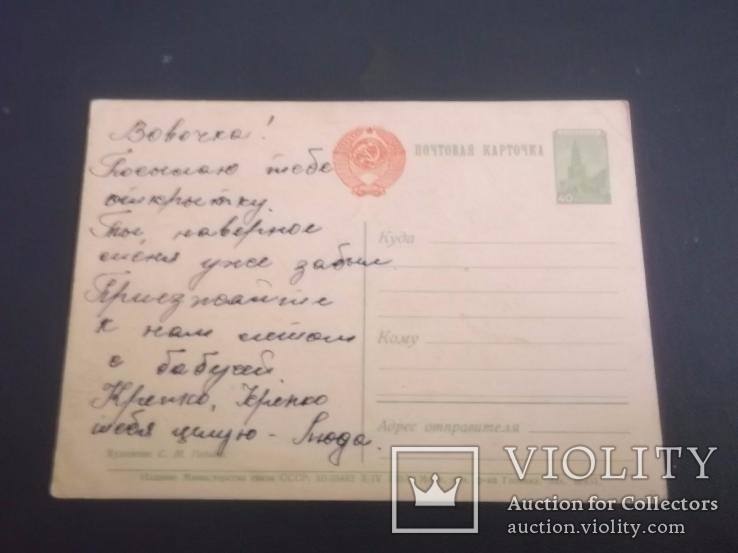 Вовочка!
Посылаю тебе
открытку.
Ты наверное
меня уже забыл.
Приезжайте
к нам летом
с бабусей
Крепко, крепко
тебя целую - Люда.
ПОЧТОВАЯ КАРТОЧКА
40
Куда
Кому
Адрес отправителя
Художник С. М.
Издание Министерства связи СССР.
VIOLITY
Auction for Collectors
auction.violity.com